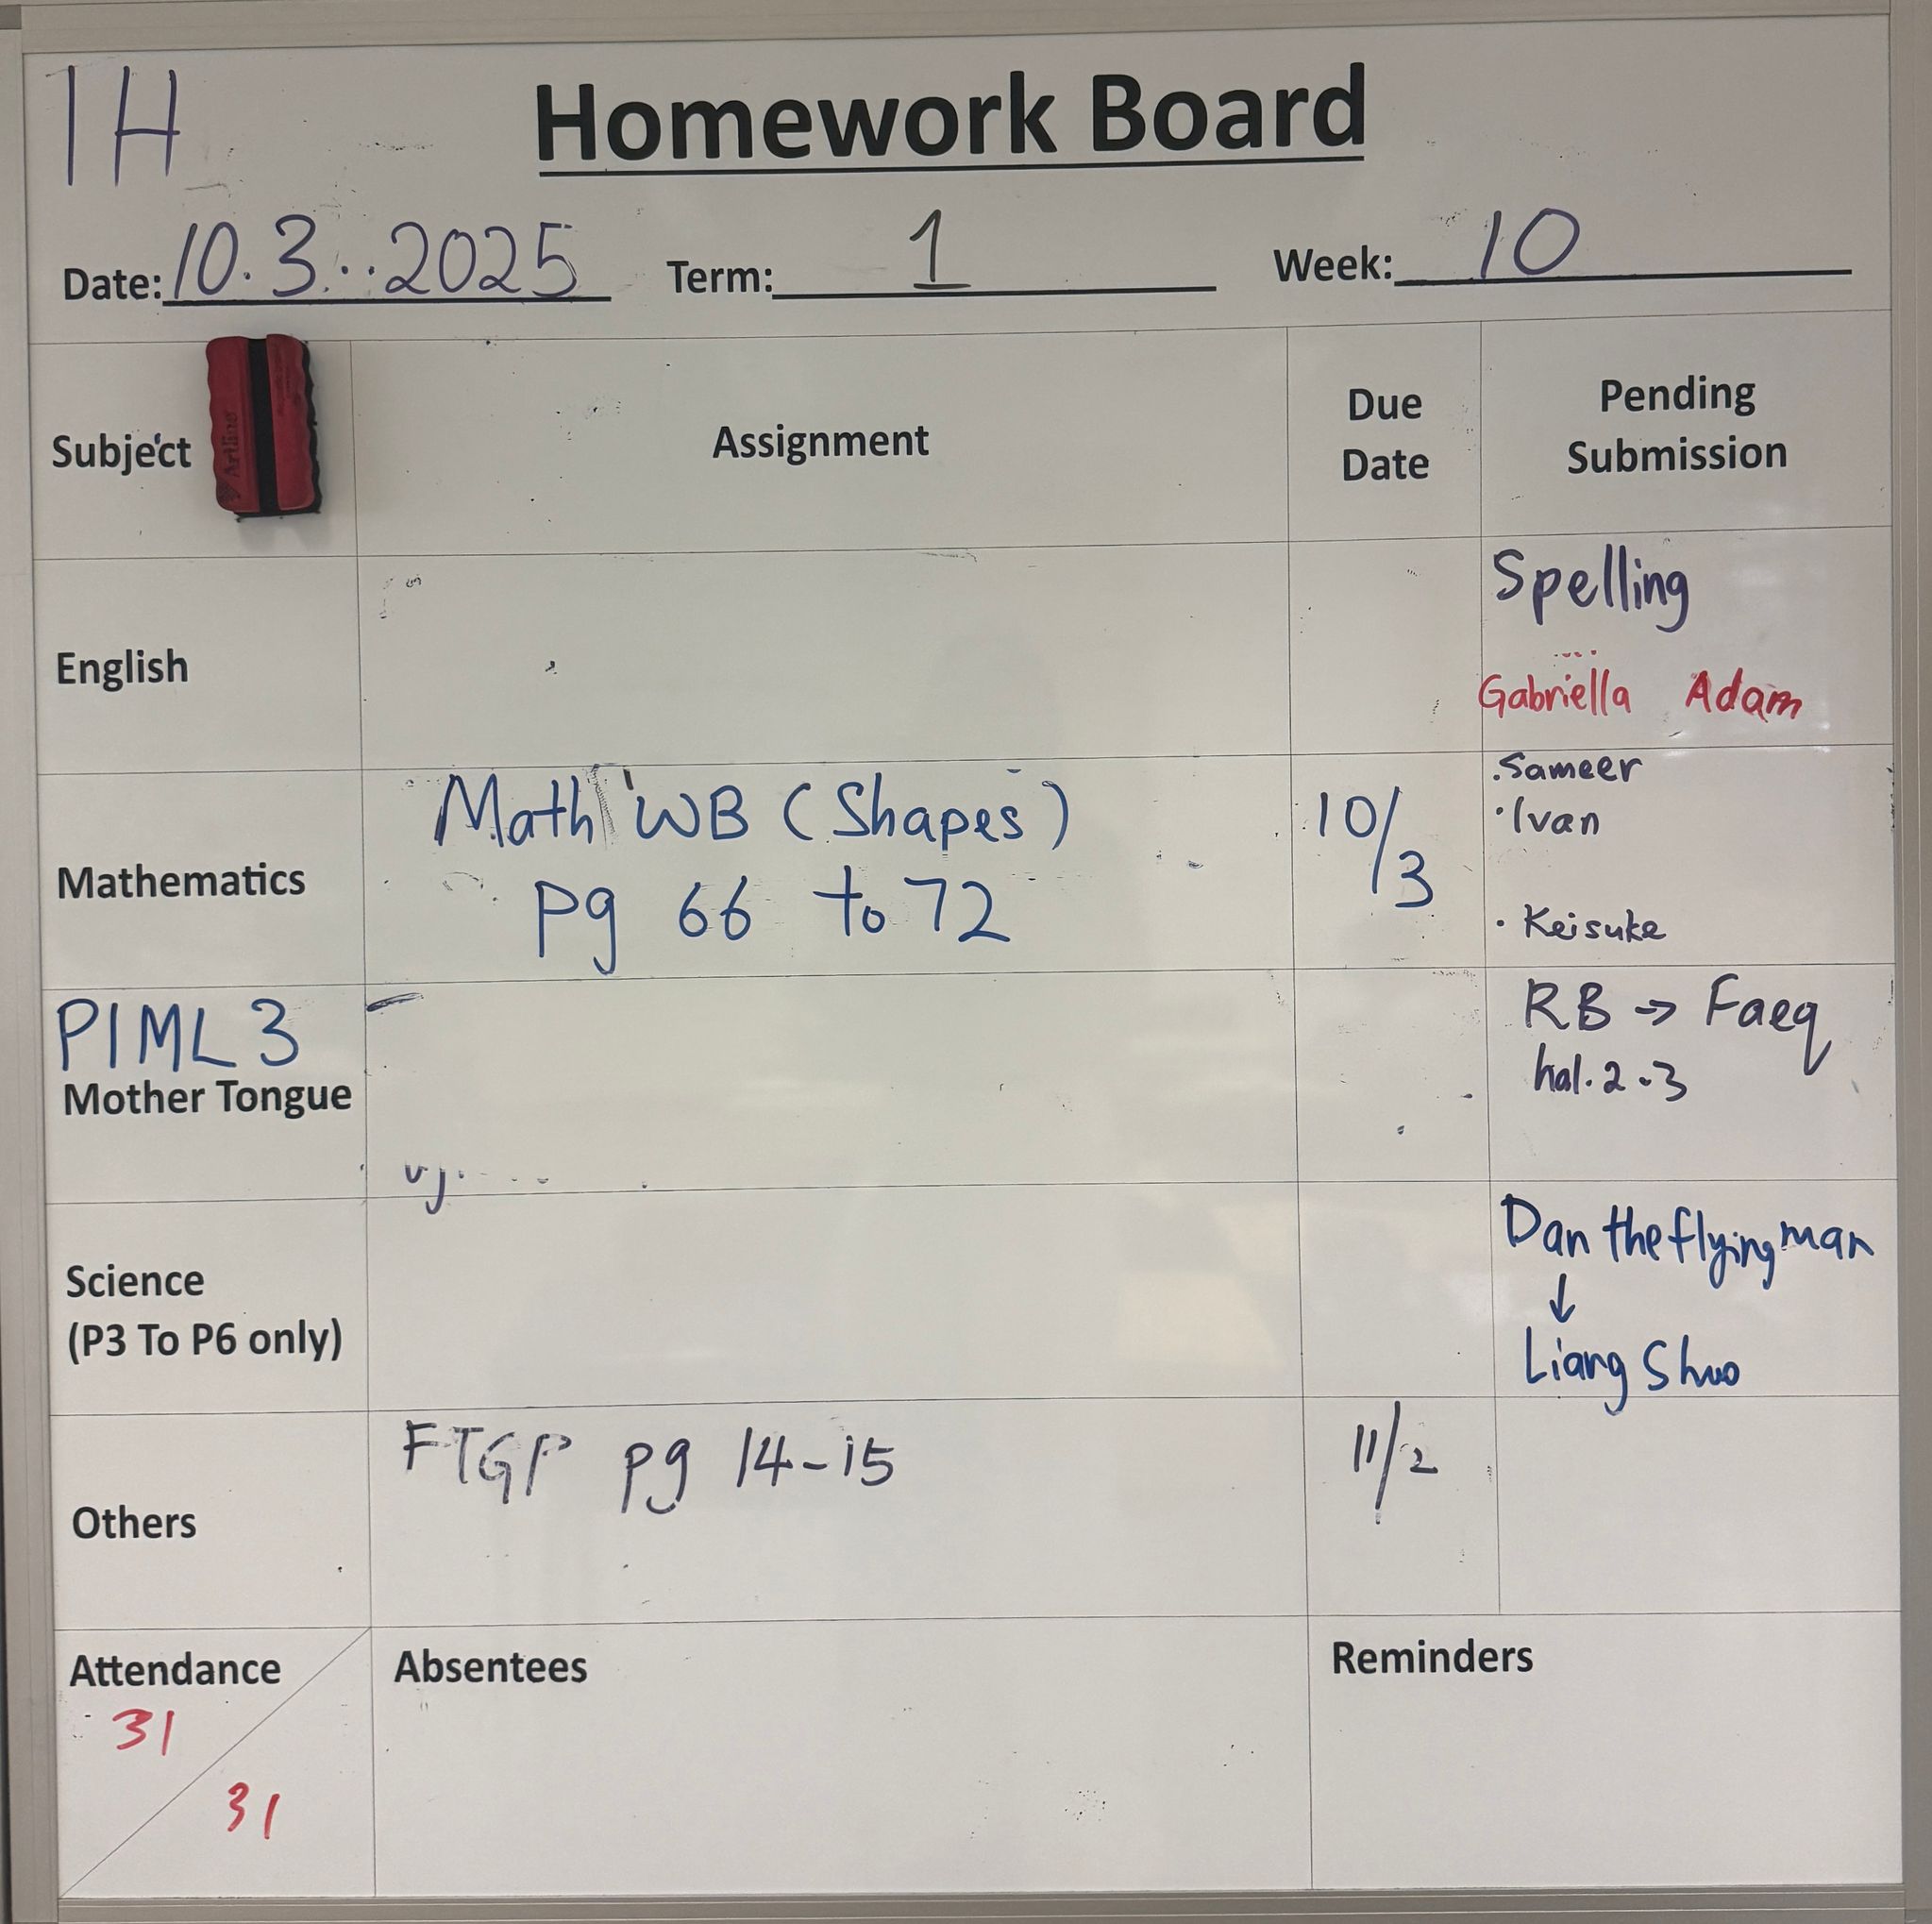 1H
Homework Board
Date: 10.3..2025 Term: 1 Week: 10
Subject
Artline
Assignment
Due
Date
Pending
Submission
English
Spelling
Gabriella Adam
Mathematics
Math WB (Shapes)
pg 66 to 72
10/3
.Sameer
·Ivan
· Keisuke
P1ML 3
Mother Tongue
RB → Faeq
hal. 2-3
Science
(P3 To P6 only)
Dan the flying man
↓
Liang Shuo
Others
FTGP pg 14-15
11/2
Attendance
31
31
Absentees
Reminders